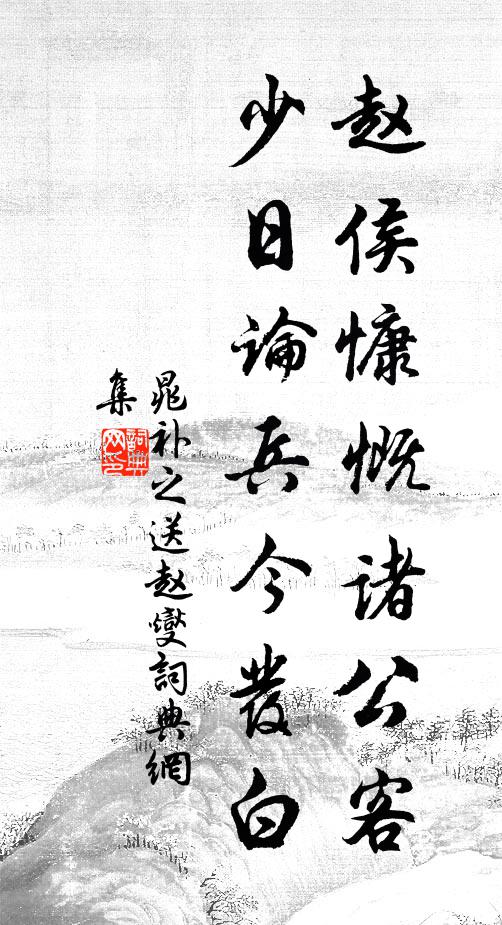 赵侯慷慨诸公客
少日論兵今发白
晁补之送赵燮詞典網
集
詞典网印